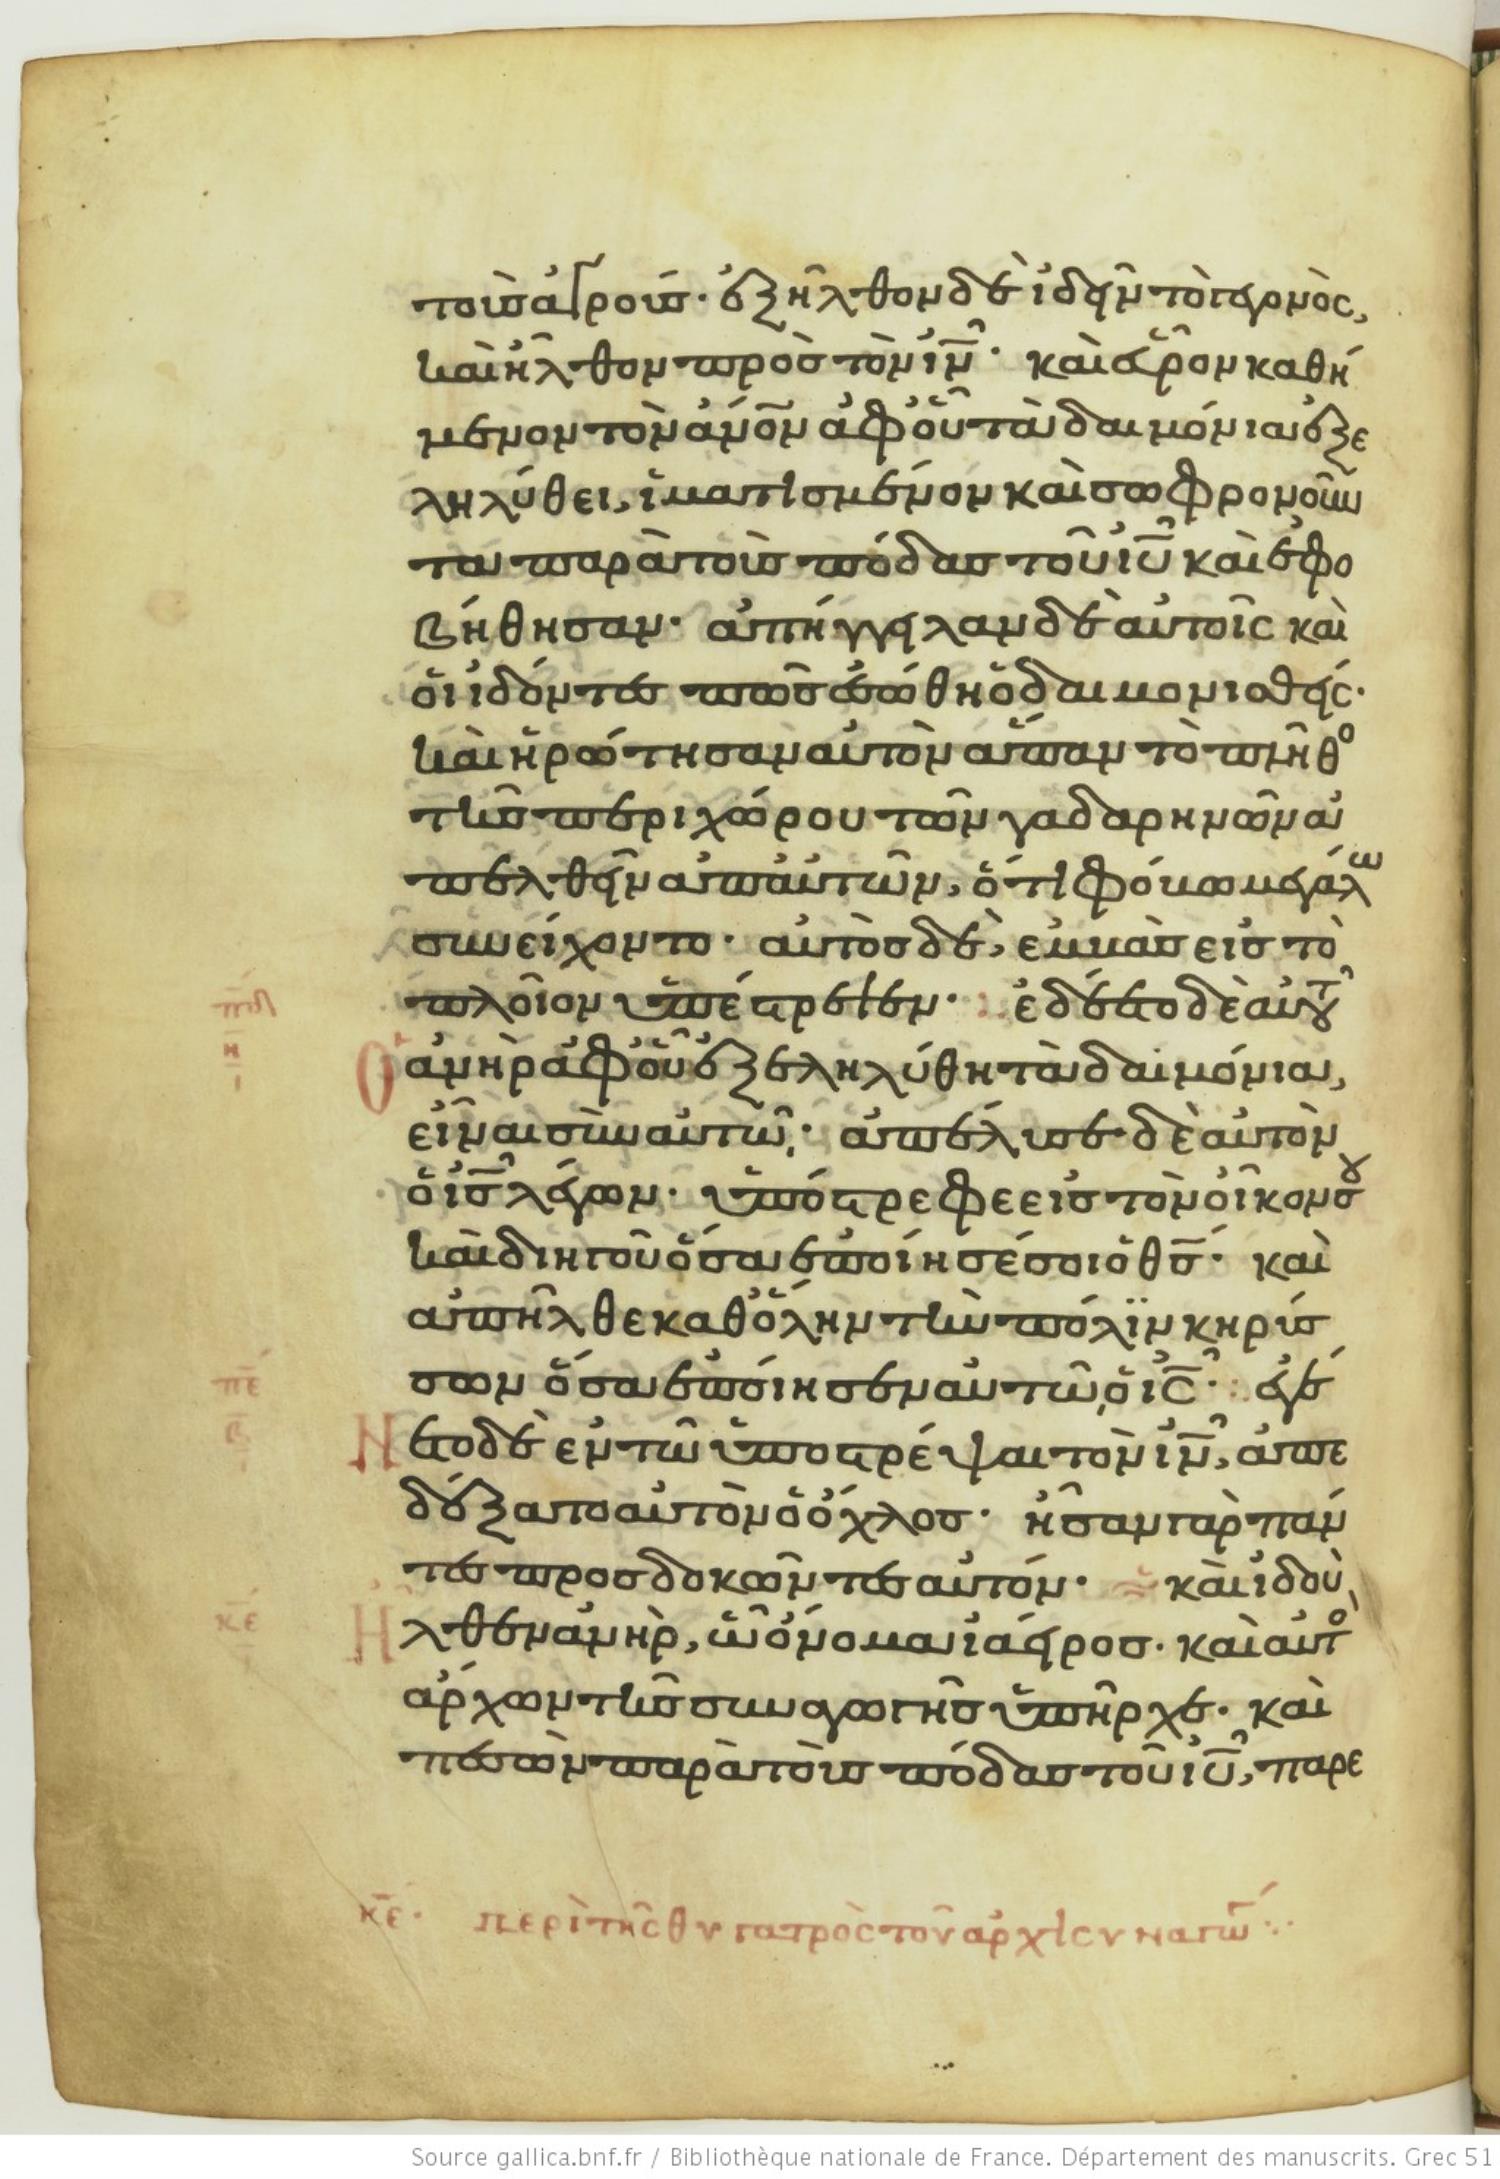 τοὺς ἀγρούς· ἐξῆλθον δὲ ἰδεῖν τὸ γεγονὸς,
καὶ ἦλθον πρὸς τὸν ἰν̅· καὶ εὗρον καθή
μενον τὸν ἄνο̅ν ἀφ' οὗ τὰ δαιμόνια ἐξε
ληλύθει, ἱματισμένον καὶ σωφρονοῦν
τα παρὰ τοὺς πόδας τοῦ ἰυ̅ καὶ ἐφο
βήθησαν· ἀπήγγειλαν δὲ αὐτοῖς καὶ
οἱ ἰδόντες πῶς ἐσώθη ὁ δαιμονισθείς·
καὶ ἠρώτησαν αὐτὸν ἅπαν τὸ πλῆθο
τῆς περιχώρου τῶν γαδαρηνῶν ἀ
πελθεῖν ἀπ' αὐτῶν, ὅτι φόβω μεγάλω
συνείχοντο· αὐτὸς δὲ, ἐμβὰς εἰς τὸ
πλοῖον ὑπέστρεψεν· ἐδέετο δὲ αὐτοῦ
Ὁ ἀνὴρ ἀφ' οὗ ἐξεληλύθη τὰ δαιμόνια,
εἶναι σὺν αὐτῶ· ἀπέλυσε δὲ αὐτὸν
ὁ ἰς̅ λέγων· ὑπόστρεφε εἰς τὸν οἶκον σου
καὶ διηγοῦ ὅσα ἐποίησέ σοι ὁ θς̅· καὶ
ἀπῆλθε καθ' ὅλην τὴν πόλϊν κηρύσ
σων ὅσα ἐποίησεν αὐτῶ, ὁ ἰς̅· ἐγέ
Νετο δὲ ἐν τῶ ὑποστρέψαι τὸν ἰν̅, ἀπε
δέξατο αὐτὸν ὁ ὄχλος· ἦσαν γὰρ πάν
τες προσδοκῶντες αὐτόν· καὶ ἰδοὺ,
Ἦλθεν ἀνὴρ, ὧ ὄνομα ἰάειρος· καὶ αὐτο
ἄρχων τῆς συναγωγῆς ὑπῆρχε· καὶ
πεσὼν παρὰ τοὺς πόδας τοῦ ἰυ̅, παρε
κε̅· περὶ τῆς θυγατρὸς τοῦ ἀρχισυναγώ
η̅
πε̅
β̅
κε̅
Source gallica.bnf.fr / Bibliothèque nationale de France. Département des manuscrits. Grec 51